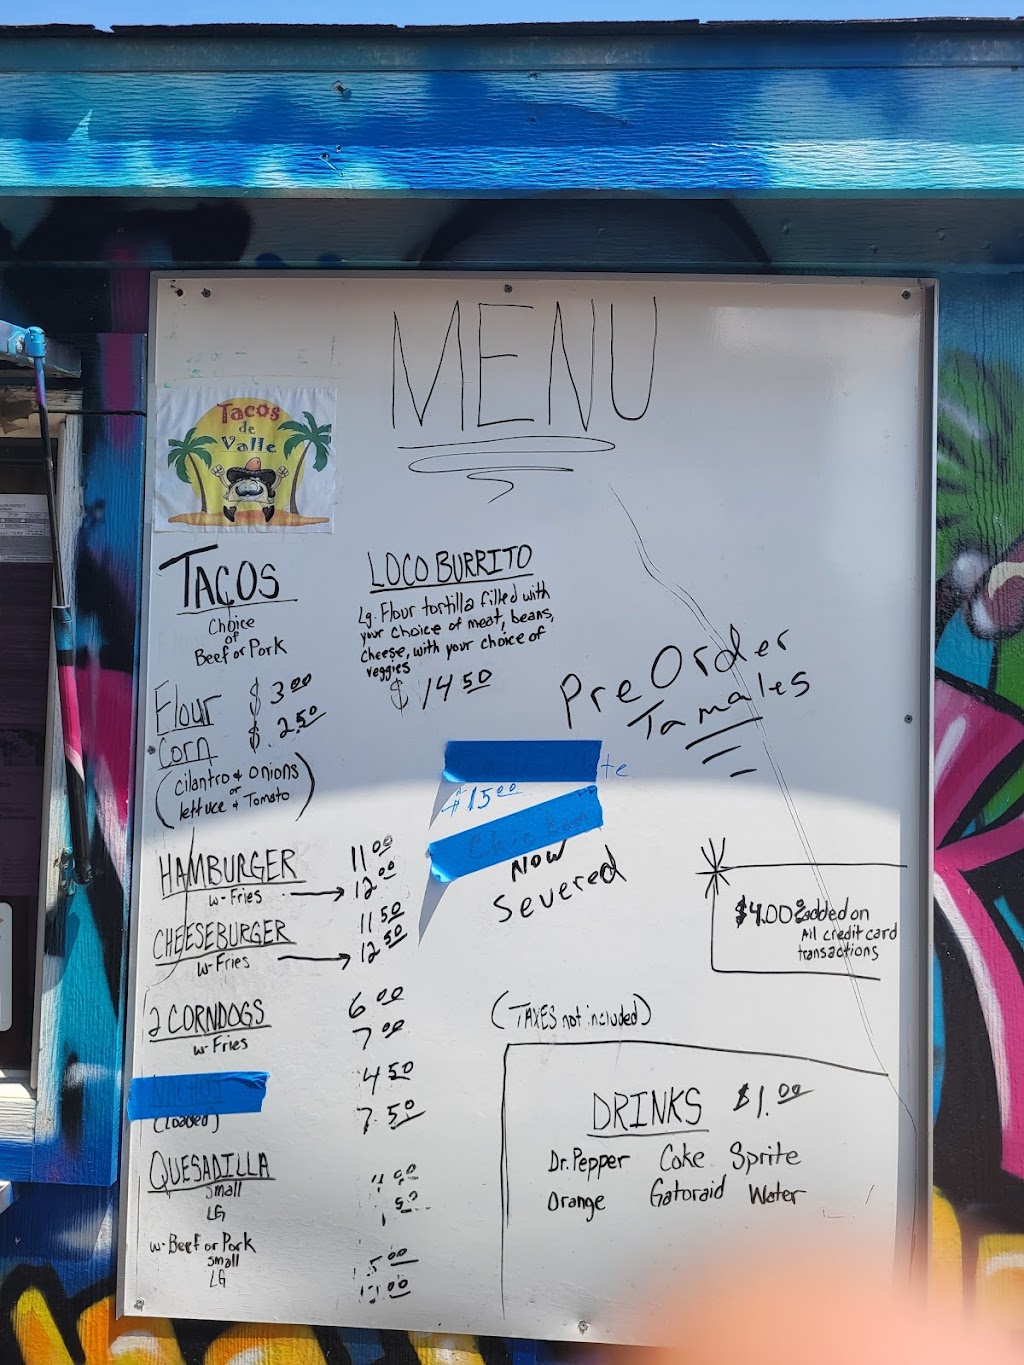 MENU
Tacos
de
Valle
TACOS
Choice
of
Beef or Pork
Flour $3.00
Corn $2.50
(cilantro & onions
or
lettuce & Tomato)
LOCO BURRITO
Lg. Flour tortilla filled with
your choice of meat, beans,
cheese, with your choice of
veggies
$14.50
Pre Order
Tamales
$15.00
Now
Severed
HAMBURGER 11.00
w-Fries → 12.00
CHEESEBURGER 11.50
w-Fries → 12.50
2 CORNDOGS 6.00
w-Fries 7.00
NACHOS 4.50
(Loaded) 7.50
QUESADILLA
Small
LG
w-Beef or Pork
Small
LG
$4.00 added on
All credit card
transactions
(TAXES not included)
DRINKS $1.00
Dr. Pepper Coke Sprite
Orange Gatoraid Water